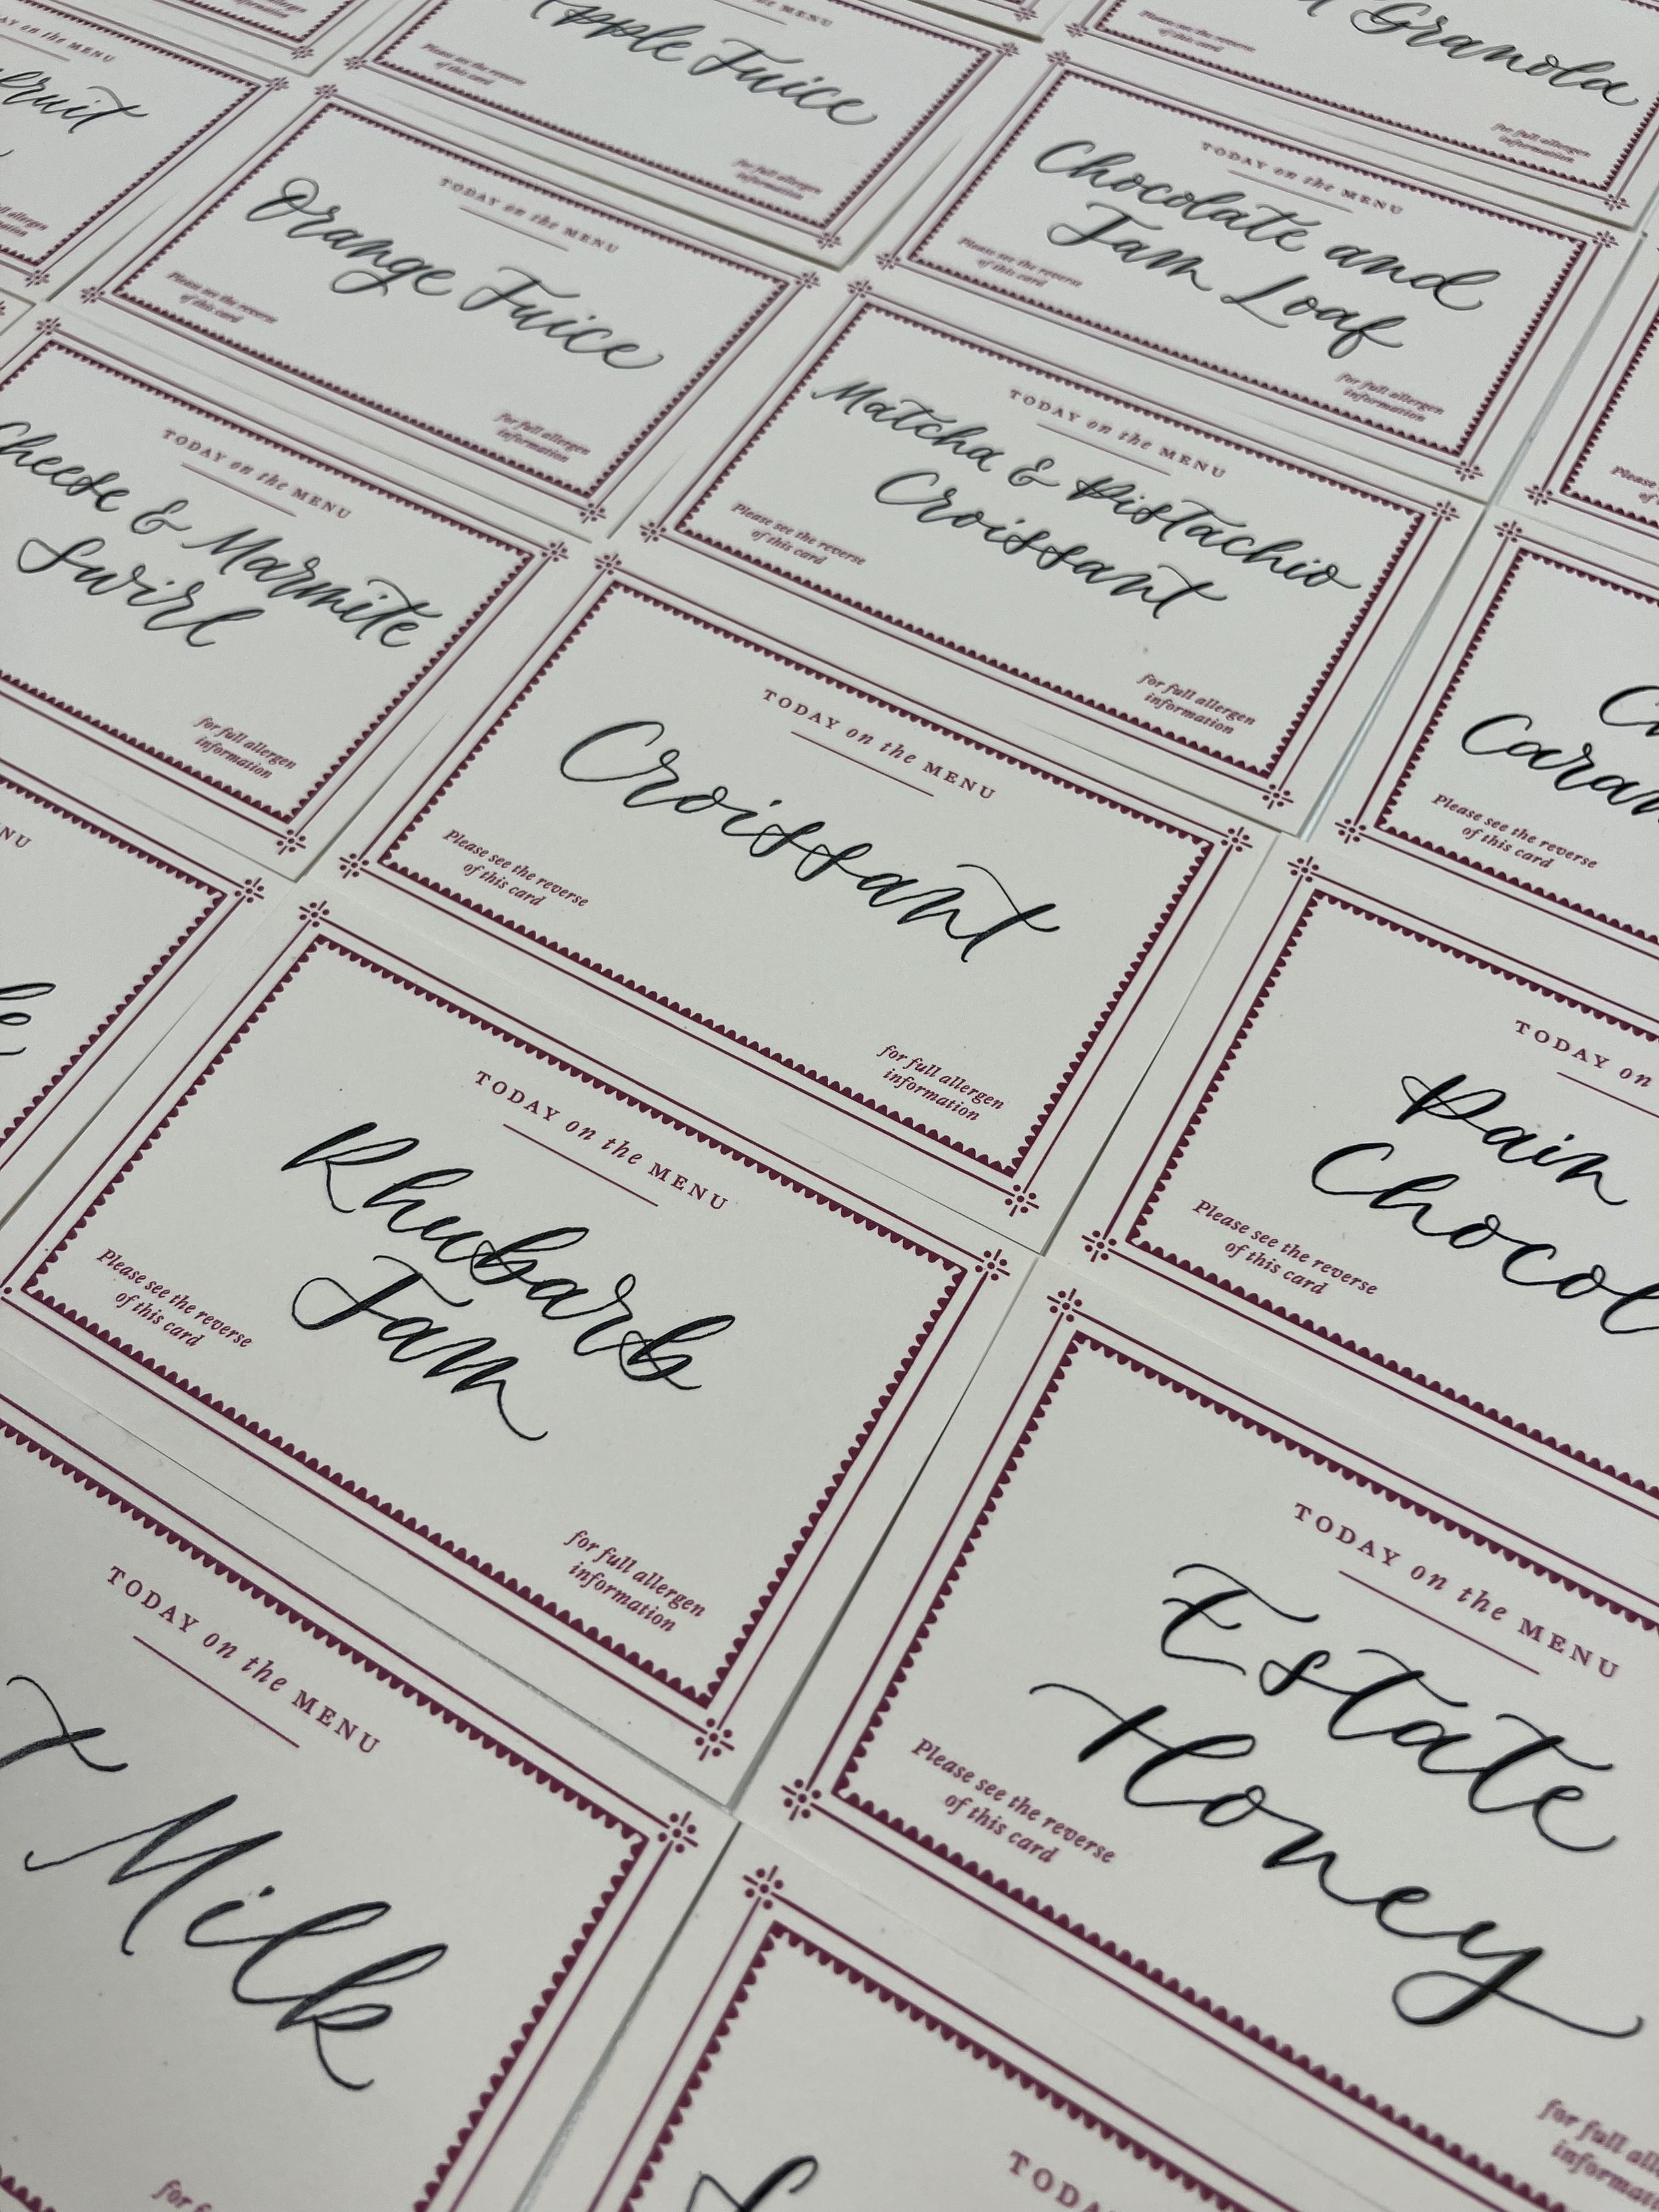 on the MENU
Please see the reverse
of this card
Apple Juice
for full allergen
information
Please see the reverse
of this card
Granola
for full allergen
information
TODAY on the MENU
Orange Juice
Please see the reverse
of this card
for full allergen
information
TODAY on the MENU
Chocolate and
Jam Loaf
Please see the reverse
of this card
for full allergen
information
TODAY on the MENU
Cheese & Marmite
Swirl
for full allergen
information
TODAY on the MENU
Matcha & Pistachio
Croissant
Please see the reverse
of this card
for full allergen
information
TODAY on the MENU
Croissant
Please see the reverse
of this card
for full allergen
information
Please see the reverse
of this card
TODAY on the MENU
Rhubarb
Jam
Please see the reverse
of this card
for full allergen
information
TODAY on
Pain
Please see the reverse
of this card
TODAY on the MENU
Milk
TODAY on the MENU
Estate
Honey
Please see the reverse
of this card
for full